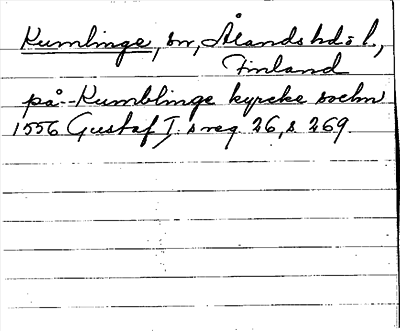 Kumlinge, sn, Ålands hd o l.,
Finland
på Kumblinge kyrcke sochn
1556 Gustaf I:s reg. 26, s. 269.